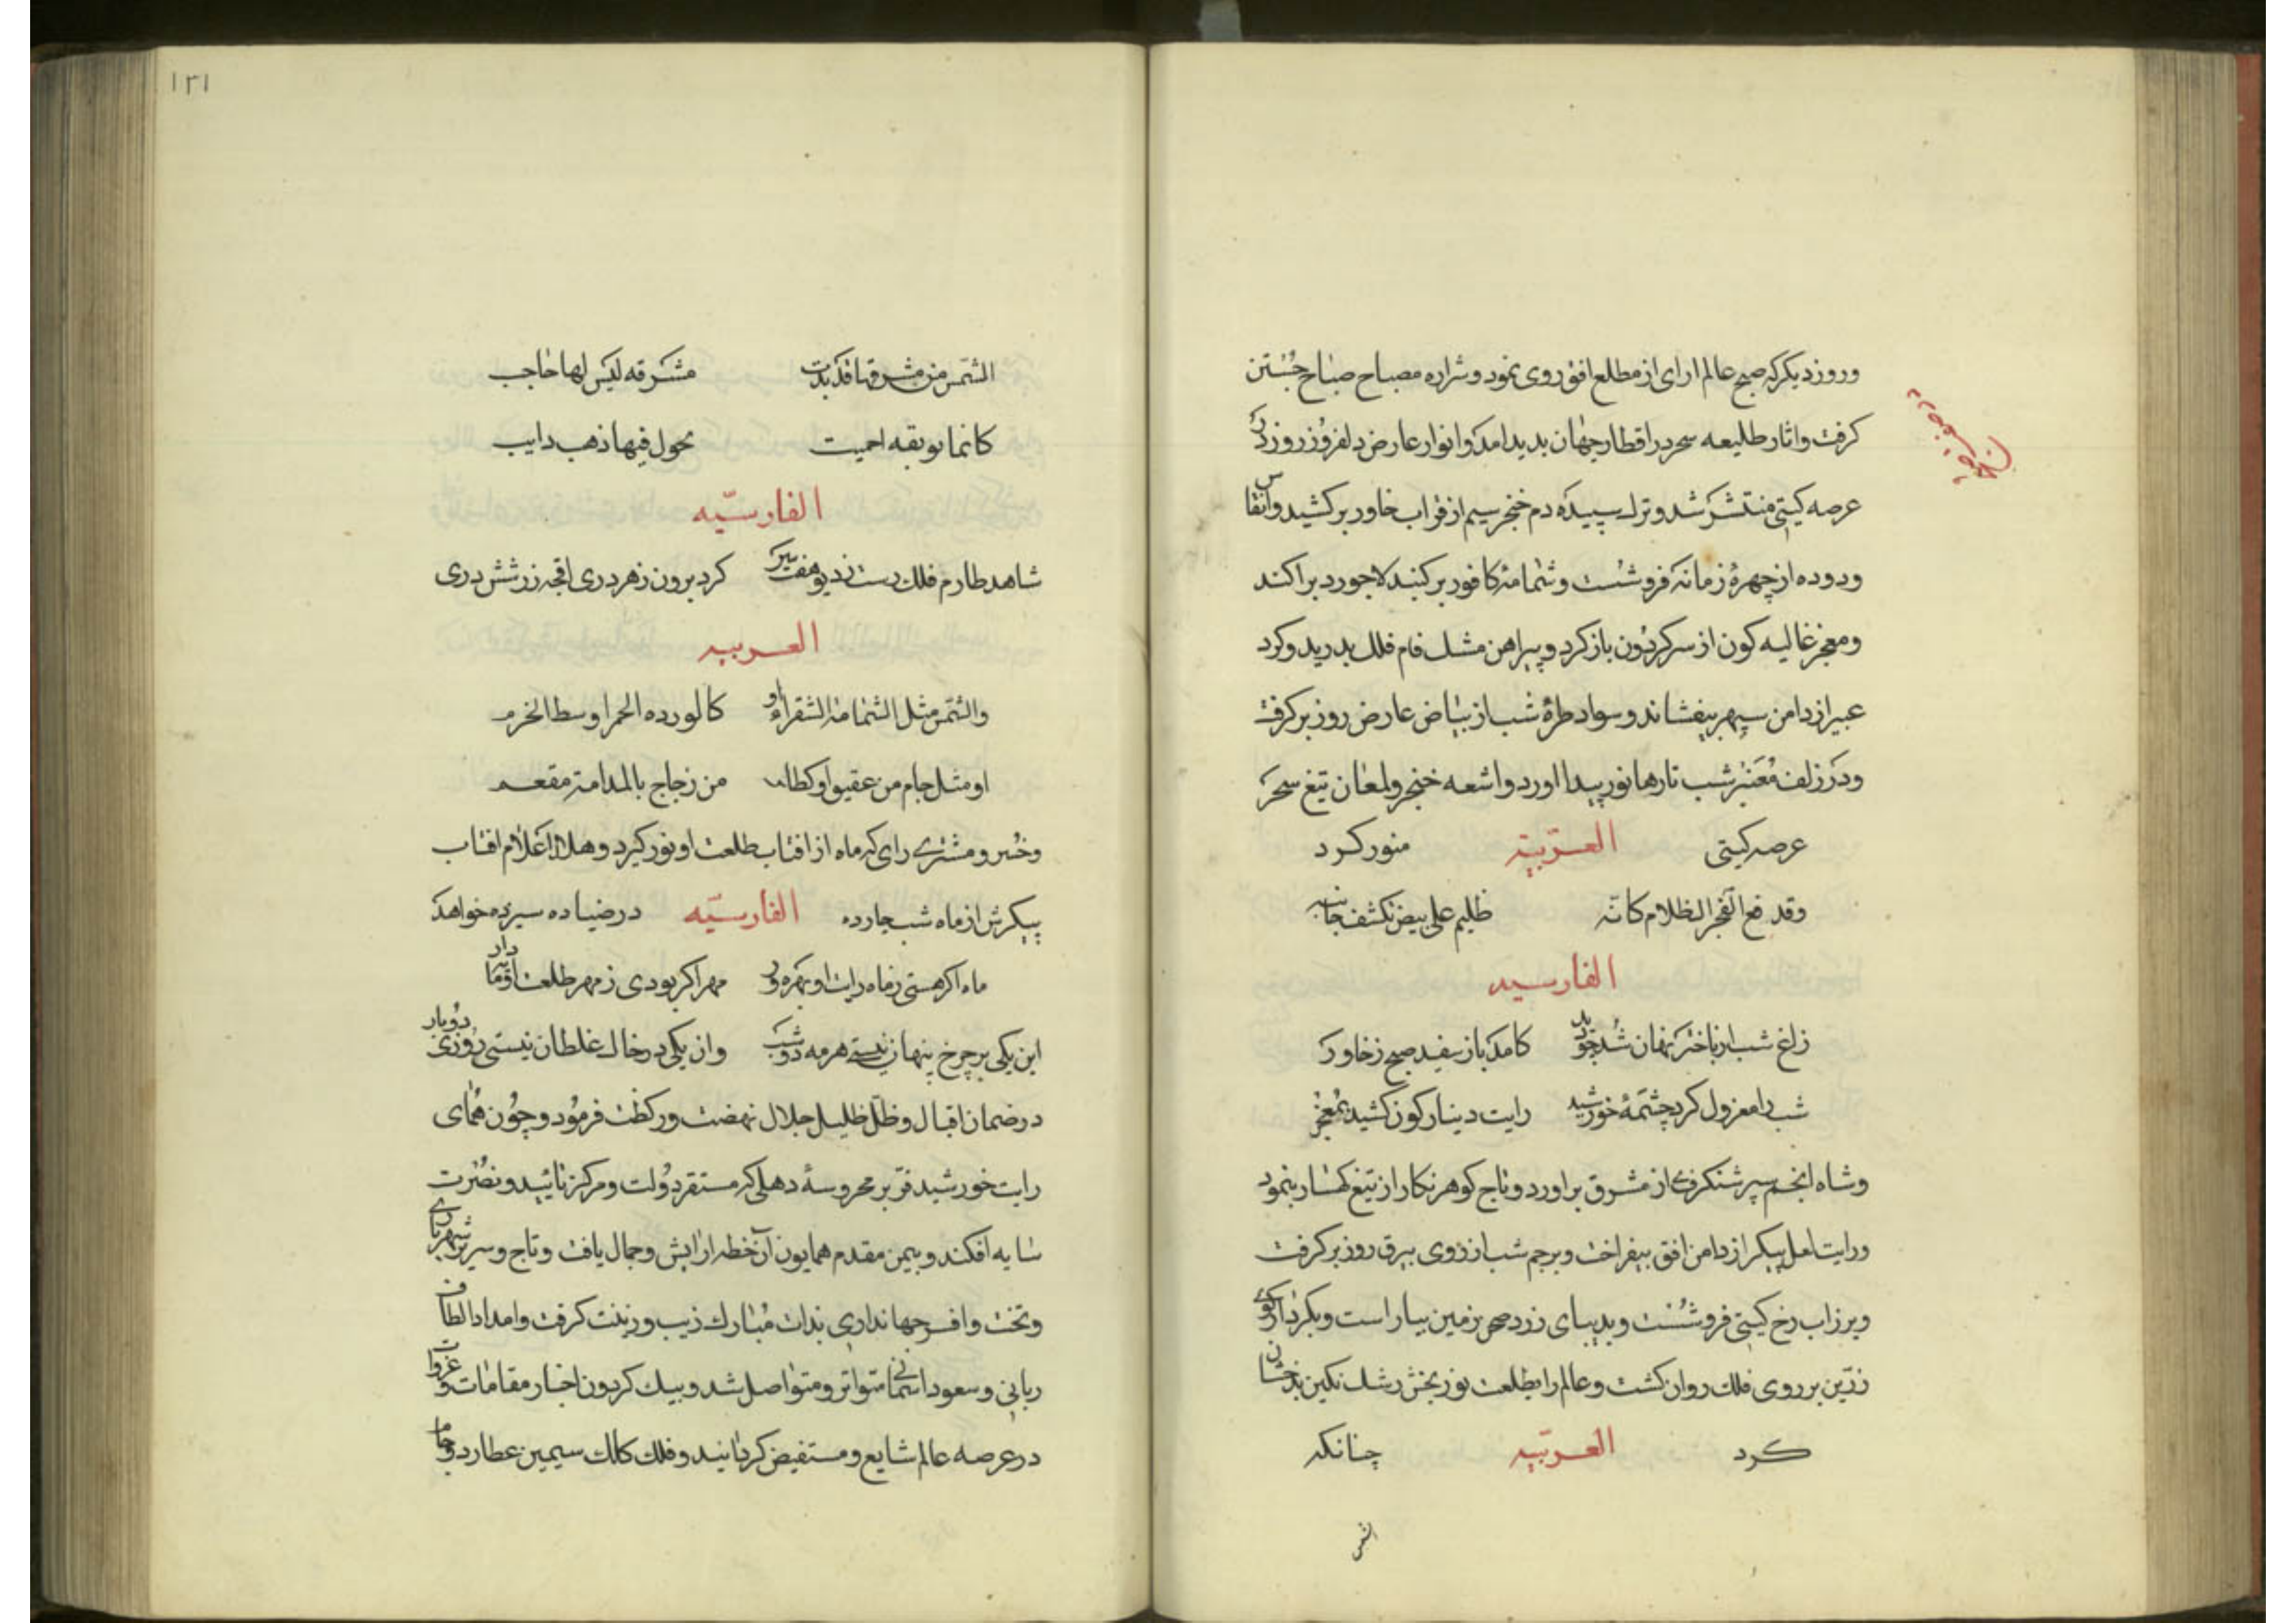 وروز دیکر که صبح عالم ارای از مطلع افق روی نمود وشراره مصباح صباح جستن
کرفت واثار طلیعه سحر در اقطار جهان بدید امد وانوار عارض دلفروز روز در
عرصه کیتی منتشر شد وترک سپیده دم خنجر سیم از قراب خاور برکشید وانقاس
ودوده از چهرهٔ زمانه فروشست وشمامهٔ کافور بر کنبد لاجورد براکند
ومعجر غالیه کون از سر کردون باز کرد وپیراهن مشک فام فلک بدرید وکرد
عبیر از دامن سپهر بیفشاند وسواد طرهٔ شب از بیاض عارض روز برکرفت
ودر زلف معنبر شب تارها نور پیدا اورد واشعه خنجر ولمعان تیغ سحر
عرصه کیتی منور کرد
العربیة
وقد رفع الفجر الظلام کانه ظلیم علی بیض تکشف جانبه
الفارسیه
زاغ شب از باختر نهان شد چو بدید کامد باز سفید صبح زخاور
شب را معزول کرد چشمهٔ خورشید رایت دینار کون کشید بمعجر
وشاه انجم سپر شنکرفی از مشرق براورد وتاج کوهر نکار از تیغ کهسار بنمود
ورایت لعل پیکر از دامن افق بیفراخت وپرچم شب از روی بیرق روز برکرفت
وبرزاب رخ کیتی فروشست وبدیبای زرد صحن زمین بیاراست وبکردار کوی
زرین بر روی فلک روان کشت وعالم را بطلعت نور بخش رشک نکین بدخشان
کرد چنانکه
العربیه
شمس
۱۳۱
الشمس من مشرقها قد بدت مشرقه لیس لها حاجب
کانما بوتقه احمیت یحول فیها ذهب دایب
الفارسیّه
شاهد طارم فلک رست زدیو هفت سر کرد برون زهر دری اقچه زر شش دری
العربیه
والشمس مثل الشمامة الشقراء او کالورده الحمرا وسط الخرم
او مثل جام من عقیق او کطاس من زجاج بالمدامة مفعم
وخسرو مشتری رای که ماه از افتاب طلعت او نور کیرد وهلال اعلام افتاب
پیکرش از ماه شب چارده در ضیا ده سیزده خواهد
الفارسیّه
ماه اکر هستی زماه رایت او بهره ور مهر اکر بودی زمهر طلعت او مایه دار
این یکی بر چرخ پنهان نیستی هر مه دو شب وان یکی در خاک غلطان نیستی روزی دوبار
در ضمان اقبال وظلّ ظلیل جلال نهضت ورکضت فرمود وچون همای
رایت خورشید فر بر محروسهٔ دهلی که مستقر دولت ومرکز تایید ونصرت
سایه افکند وبیمن مقدم همایون آن خطه ارایش وجمال یافت وتاج وسریر شهریاری
وتخت وافسر جهانداری بذات مبارک زیب وزینت کرفت وامداد الطاف
ربانی وسعود اسمانی متواتر ومتواصل شد وپیک کردون اخبار مقامات وغزوات
در عرصه عالم شایع ومستفیض کردانید وفلک کلک سیمین عطارد